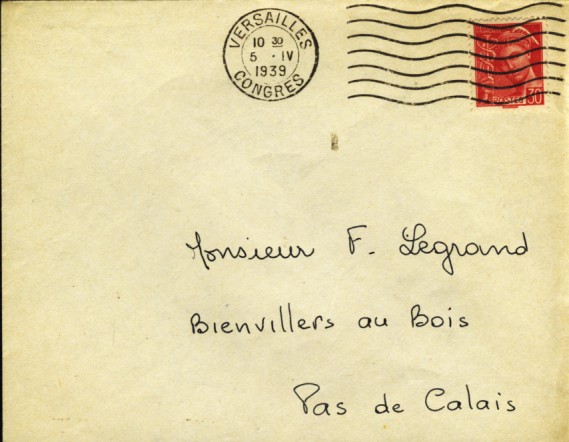 VERSAILLES
10 30
5 · IV
1939
CONGRES
POSTES 30
Monsieur F. Legrand
Bienvillers au Bois
Pas de Calais